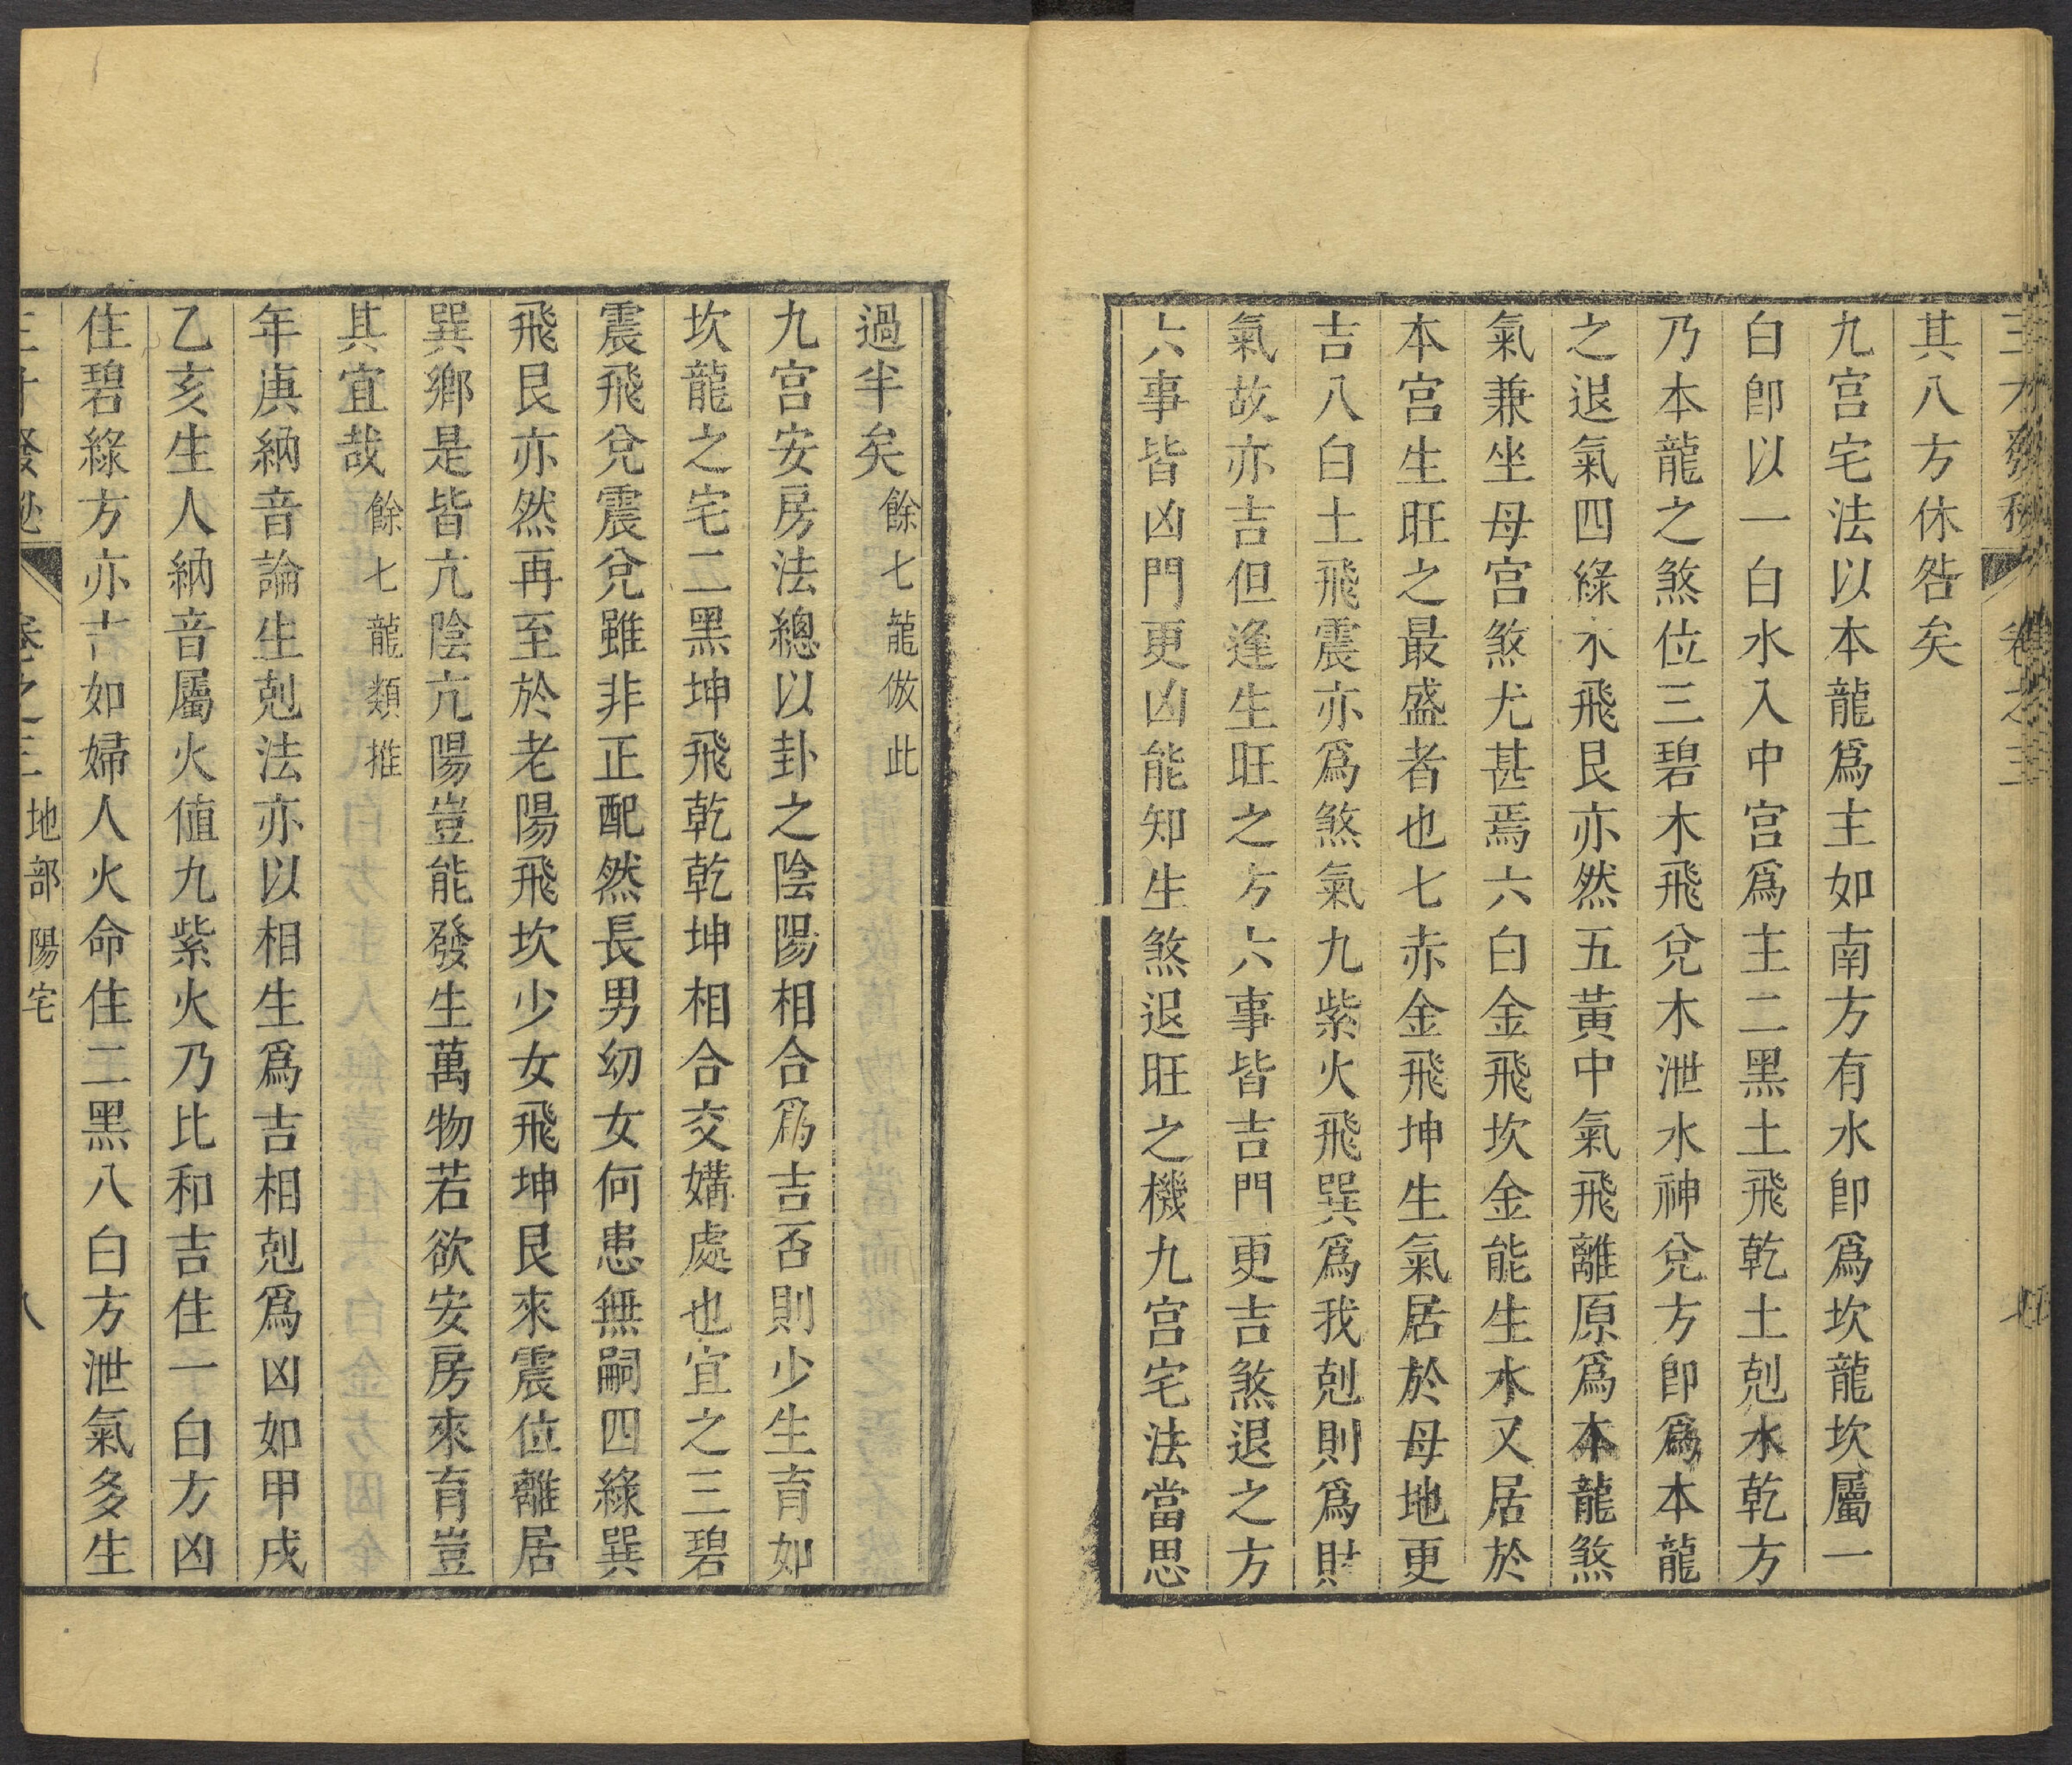 三才發秘 卷之三
其八方休咎矣
九宫宅法以本龍爲主如南方有水卽爲坎龍坎屬一
白卽以一白水入中宫爲主二黑土飛乾土剋水乾方
乃本龍之煞位三碧木飛兌木泄水神兌方卽爲本龍
之退氣四綠木飛艮亦然五黃中氣飛離原爲本龍煞
氣兼坐母宫煞尤甚焉六白金飛坎金能生水又居於
本宫生旺之最盛者也七赤金飛坤生氣居於母地更
吉八白土飛震亦爲煞氣九紫火飛巽爲我剋則爲財
氣故亦吉但逢生旺之方六事皆吉門更吉煞退之方
六事皆凶門更凶能知生煞退旺之機九宫宅法當思
過半矣餘七龍倣此
九宫安房法總以卦之陰陽相合爲吉否則少生育如
坎龍之宅二黑坤飛乾乾坤相合交媾處也宜之三碧
震飛兌震兌雖非正配然長男幼女何患無嗣四綠巽
飛艮亦然再至於老陽飛坎少女飛坤艮來震位離居
巽鄉是皆亢陰亢陽豈能發生萬物若欲安房來育豈
其宜哉餘七龍類推
年庚納音論生剋法亦以相生爲吉相剋爲凶如甲戌
乙亥生人納音屬火值九紫火乃比和吉住一白方凶
住碧綠方亦吉如婦人火命住二黑八白方泄氣多生
三才發秘 卷之三 地部 陽宅 八